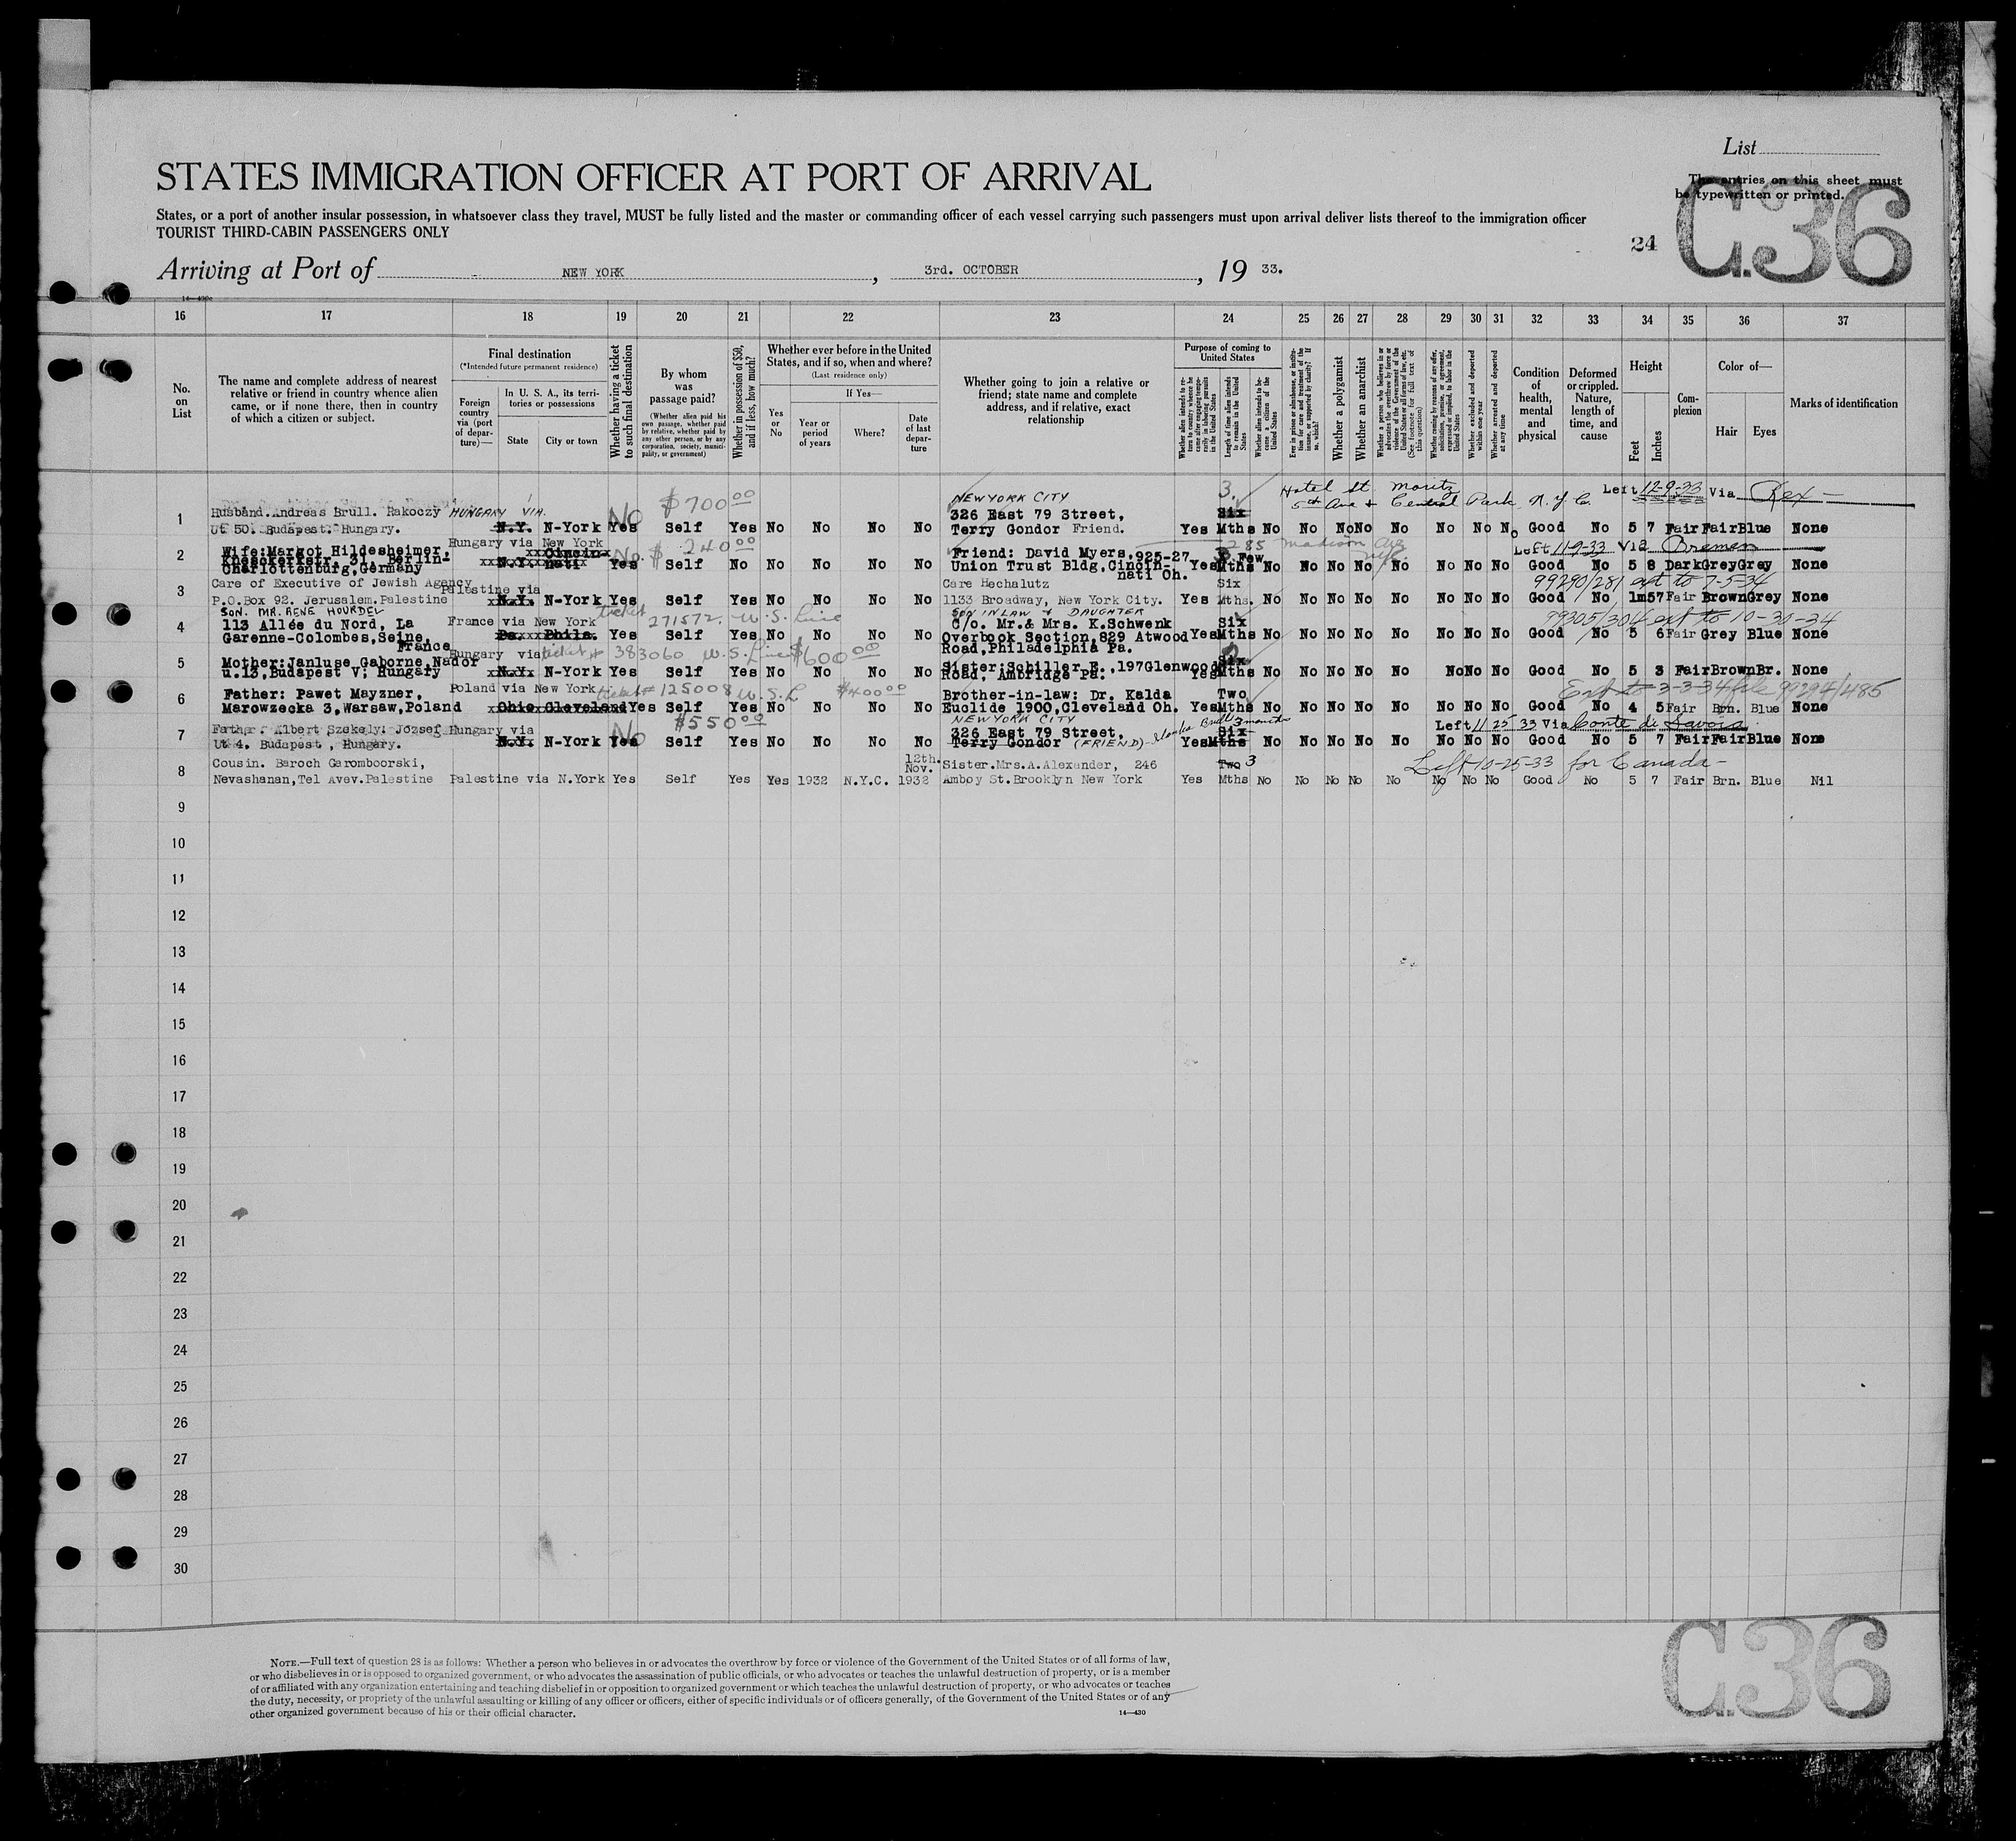 List
The entries on this sheet must
be typewritten or printed.
C.36
24
STATES IMMIGRATION OFFICER AT PORT OF ARRIVAL
States, or a port of another insular possession, in whatsoever class they travel, MUST be fully listed and the master or commanding officer of each vessel carrying such passengers must upon arrival deliver lists thereof to the immigration officer
TOURIST THIRD-CABIN PASSENGERS ONLY
Arriving at Port of NEW YORK, 3rd. OCTOBER, 19 33.
16 17 18 19 20 21 22 23 24 25 26 27 28 29 30 31 32 33 34 35 36 37
No. on List
The name and complete address of nearest relative or friend in country whence alien came, or if none there, then in country of which a citizen or subject.
Final destination
(*Intended future permanent residence)
Foreign country via (port of departure)—
In U. S. A., its territories or possessions
State
City or town
Whether having a ticket to such final destination
By whom was passage paid?
(Whether alien paid his own passage, whether paid by relative, whether paid by any other person, or by any corporation, society, municipality, or government)
Whether in possession of $50, and if less, how much?
Whether ever before in the United States, and if so, when and where?
(Last residence only)
Yes or No
If Yes—
Year or period of years
Where?
Date of last departure
Whether going to join a relative or friend; state name and complete address, and if relative, exact relationship
Purpose of coming to United States
Length of time alien intends to remain in the United States
Whether alien intends to become a citizen of the United States
Whether a polygamist
Whether an anarchist
Whether arrested and deported at any time
Condition of health, mental and physical
Deformed or crippled. Nature, length of time, and cause
Height
Feet
Inches
Complexion
Color of—
Hair
Eyes
Marks of identification
$700.00 NEW YORK CITY 3. Hotel St. Moritz Left 12-9-33 Via Rex
Husband. Andreas Brull. Rakoczy HUNGARY VIA. No 326 East 79 Street, Six 5th Ave & Central Park, N.Y.C.
1 Ut 50. Budapest. Hungary. N.Y. N-York Yes Self Yes No No No No Terry Gondor Friend. Yes Mths No No No No No No No No Good No 5 7 Fair Fair Blue None
Hungary via New York No. $ 240.00 285 Madison Ave NYC
2 Wife: Margot Hildesheimer, Cincin- Friend: David Myers, 925-27 Few Left 11-9-33 Via Bremen
Knesebeckstr. 31, Berlin- N.Y. nati Yes Self No No No No No Union Trust Bldg, Cincin- Yes Mths No No No No No No No No Good No 5 8 Dark Grey Grey None
Charlottenburg, Germany nati Oh.
Care of Executive of Jewish Agency Palestine via Care Hechalutz Six 99290/281 ext to 7-5-34
3 P.O.Box 92. Jerusalem. Palestine N.Y. N-York Yes Self Yes No No No No 1133 Broadway, New York City. Yes Mths. No No No No No No No No Good No 1m57 Fair Brown Grey None
SON. MR. RENE HOURDEL ticket 271572. W.S. Line SON IN LAW & DAUGHTER 99305/304 ext to 10-30-34
4 113 Allée du Nord, La France via New York C/o. Mr.& Mrs. K.Schwenk Six
Garenne-Colombes, Seine, Pa. Phila. Yes Self Yes No No No No Overbook Section, 829 Atwood Yes Mths No No No No No No No No Good No 5 6 Fair Grey Blue None
France Road, Philadelphia Pa.
Hungary via ticket # 383060 W.S. Line $600.00
5 Mother: Janluse Gaborne, Nador Sister: Schiller E., 197 Glenwood Six
u.13, Budapest V; Hungary N.Y. N-York Yes Self Yes No No No No Road, Ambridge Pa. Yes Mths No No No No No No No No Good No 5 3 Fair Brown Br. None
Poland via New York ticket # 125008 W.S.L $400.00 Ext to 3-3-34 file 99294/485
6 Father: Pawet Mayzner, Brother-in-law: Dr. Kalda Two
Marowzecka 3, Warsaw, Poland Ohio Cleveland Yes Self Yes No No No No Euclide 1900, Cleveland Oh. Yes Mths No No No No No No No No Good No 4 5 Fair Brn. Blue None
$550.00 NEW YORK CITY 3 months Left 11 25 33 Via Conte di Savoia
7 Father. Albert Szekely. József Hungary via No 326 East 79 Street, Six
Ut 4. Budapest, Hungary. N.Y. N-York Yes Self Yes No No No No Terry Gondor (FRIEND) Yes Mths No No No No No No No No Good No 5 7 Fair Fair Blue None
Cousin. Baroch Garomboorski, 12th. Nov. Sister. Mrs. A. Alexander, 246 Two 3 Left 10-25-33 for Canada-
8 Nevashanan, Tel Avev. Palestine Palestine via N.York Yes Self Yes Yes 1932 N.Y.C. 1932 Amboy St. Brooklyn New York Yes Mths No No No No No No No No Good No 5 7 Fair Brn. Blue Nil
9
10
11
12
13
14
15
16
17
18
19
20
21
22
23
24
25
26
27
28
29
30
NOTE.—Full text of question 28 is as follows: Whether a person who believes in or advocates the overthrow by force or violence of the Government of the United States or of all forms of law,
or who disbelieves in or is opposed to organized government, or who advocates the assassination of public officials, or who advocates or teaches the unlawful destruction of property, or is a member
of or affiliated with any organization entertaining and teaching disbelief in or opposition to organized government or which teaches the unlawful destruction of property, or who advocates or teaches
the duty, necessity, or propriety of the unlawful assaulting or killing of any officer or officers, either of specific individuals or of officers generally, of the Government of the United States or of any
other organized government because of his or their official character.
14—430
C.36